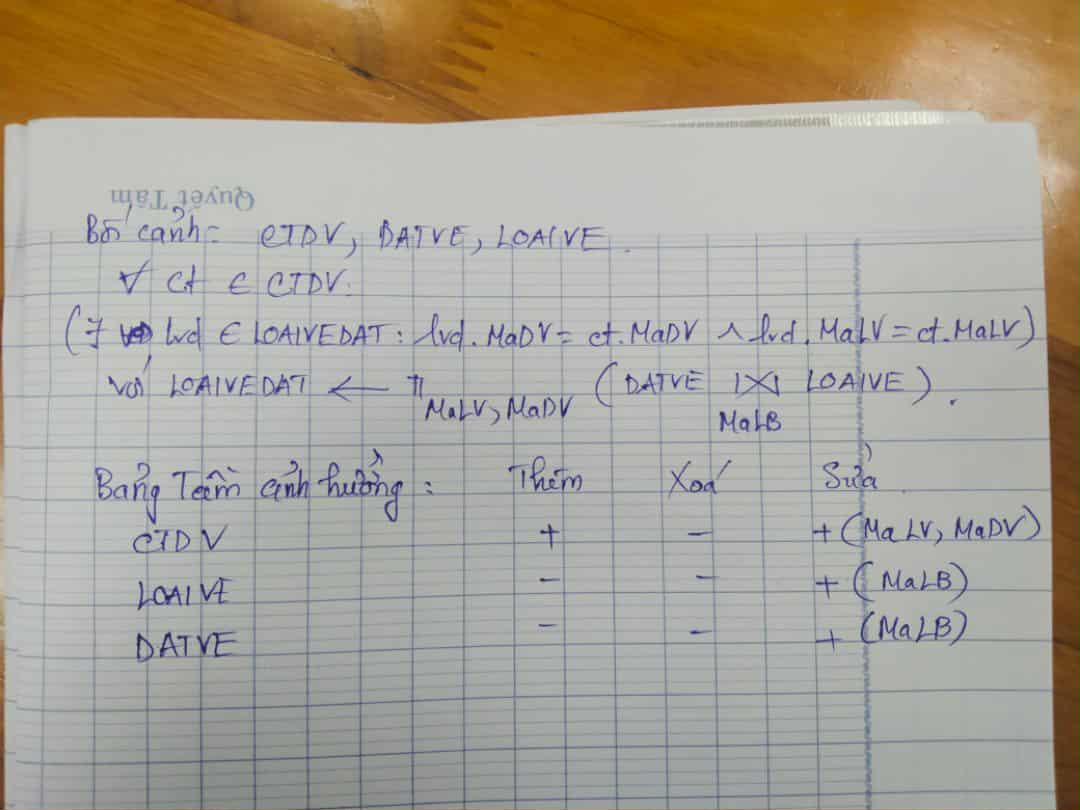 Quyết Tâm
Bối cảnh: CTDV, DATVE, LOAIVE.
∀ ct ∈ CTDV:
(∃ lvd ∈ LOAIVEDAT: lvd.MaDV = ct.MaDV ∧ lvd.MaLV = ct.MaLV)
với LOAIVEDAT ← π MaLV, MaDV (DATVE |X| MaLB LOAIVE).
Bảng Tầm ảnh hưởng: Thêm Xoá Sửa
CTDV + - + (MaLV, MaDV)
LOAIVE - - + (MaLB)
DATVE - - + (MaLB)